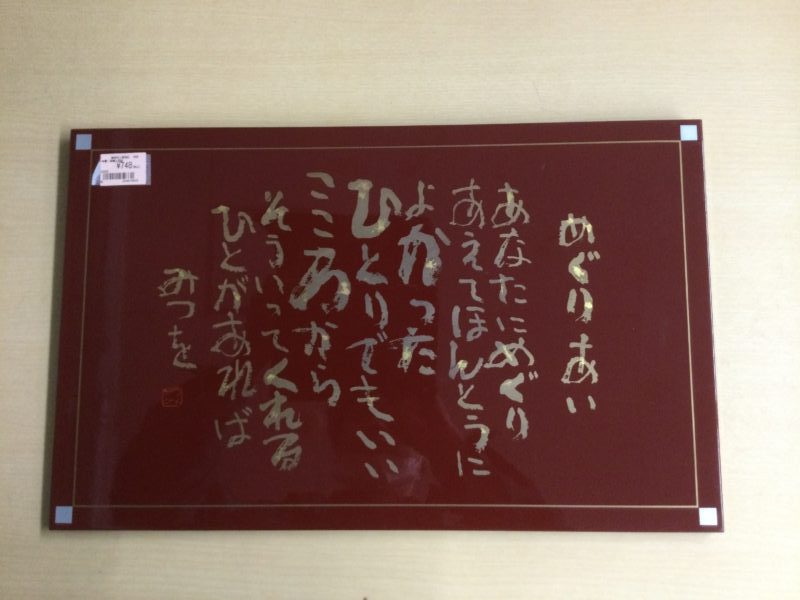 めぐりあい
あなたにめぐり
あえてほんとうに
よかった
ひとりでもいい
こころから
そういってくれる
ひとがあれば
みつを
¥748